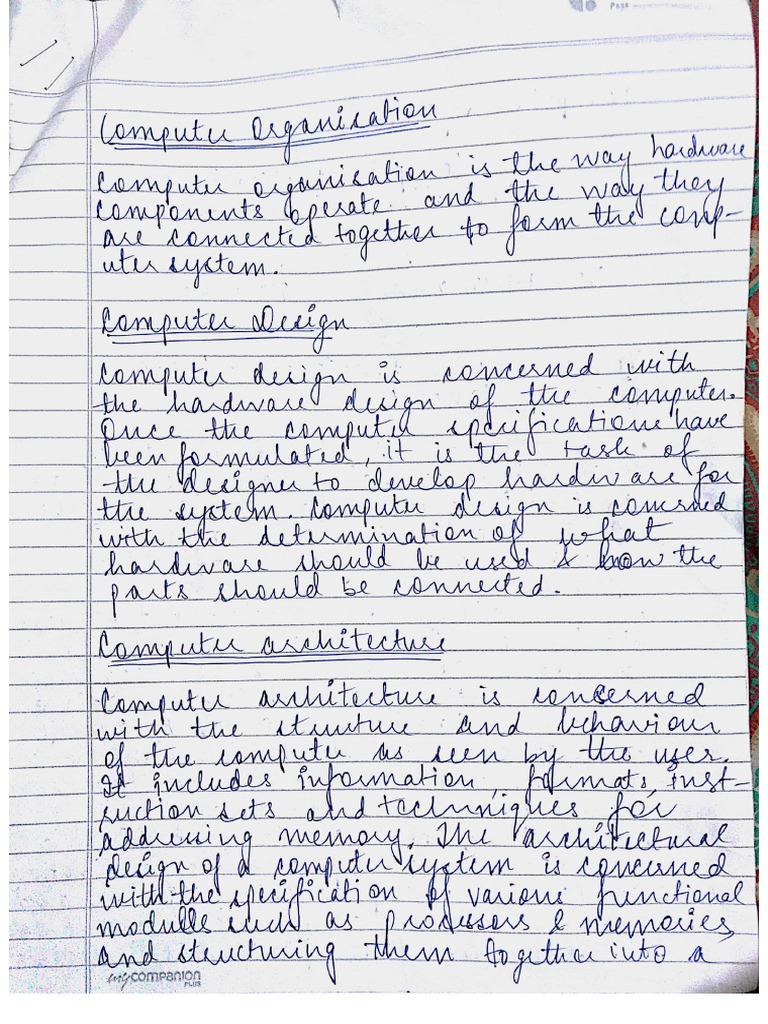 PAGE
Computer Organisation
Computer organisation is the way hardware
components operate and the way they
are connected together to form the comp-
uter system.
Computer Design
Computer design is concerned with
the hardware design of the computer.
Once the computer specifications have
been formulated, it is the task of
the designer to develop hardware for
the system. Computer design is concerned
with the determination of what
hardware should be used & how the
parts should be connected.
Computer architecture
Computer architecture is concerned
with the structure and behaviour
of the computer as seen by the user.
It includes information, formats, inst-
ruction sets and techniques for
addressing memory. The architectural
design of a computer system is concerned
with the specification of various functional
modules such as processors & memories,
and structuring them together into a
my companion
PLUS